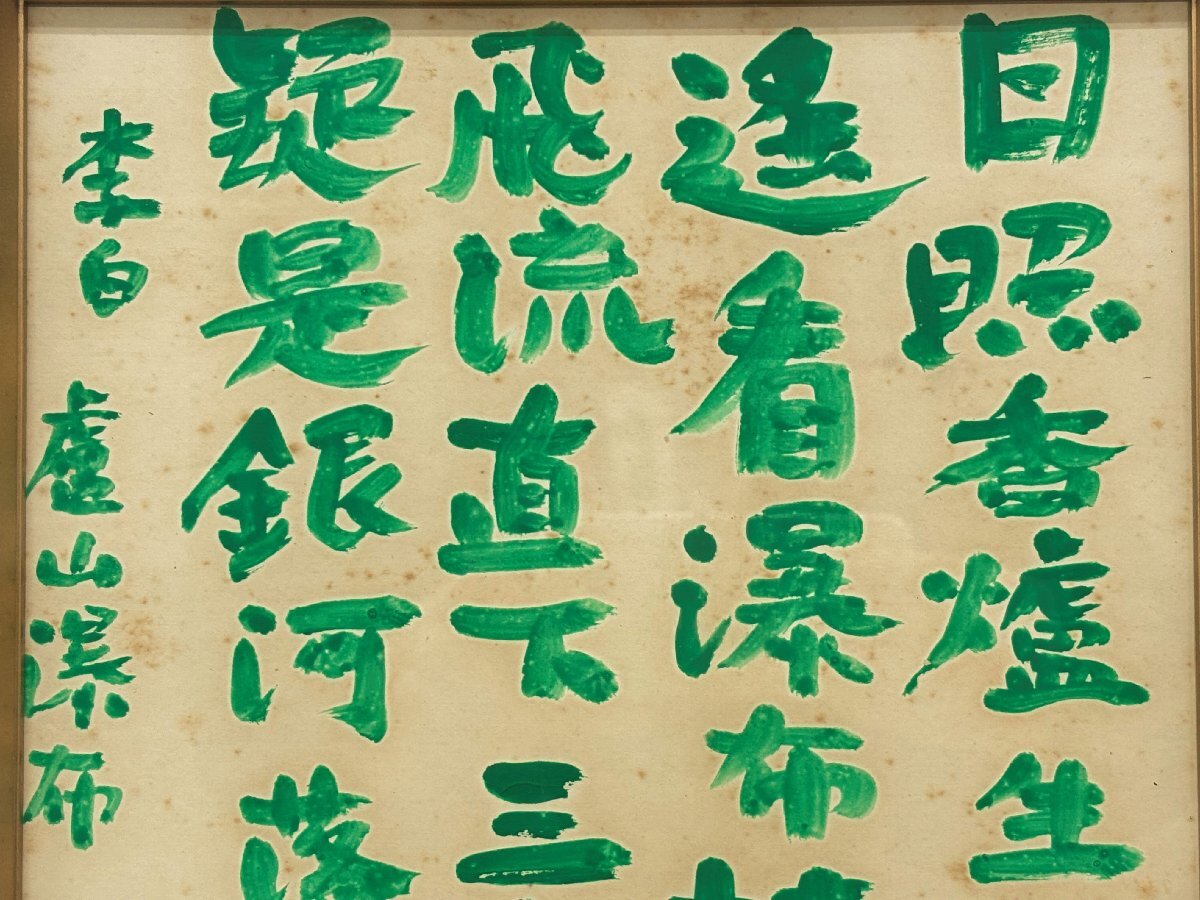 日照香爐生
遙看瀑布
飛流直下三
疑是銀河落
李白 廬山瀑布